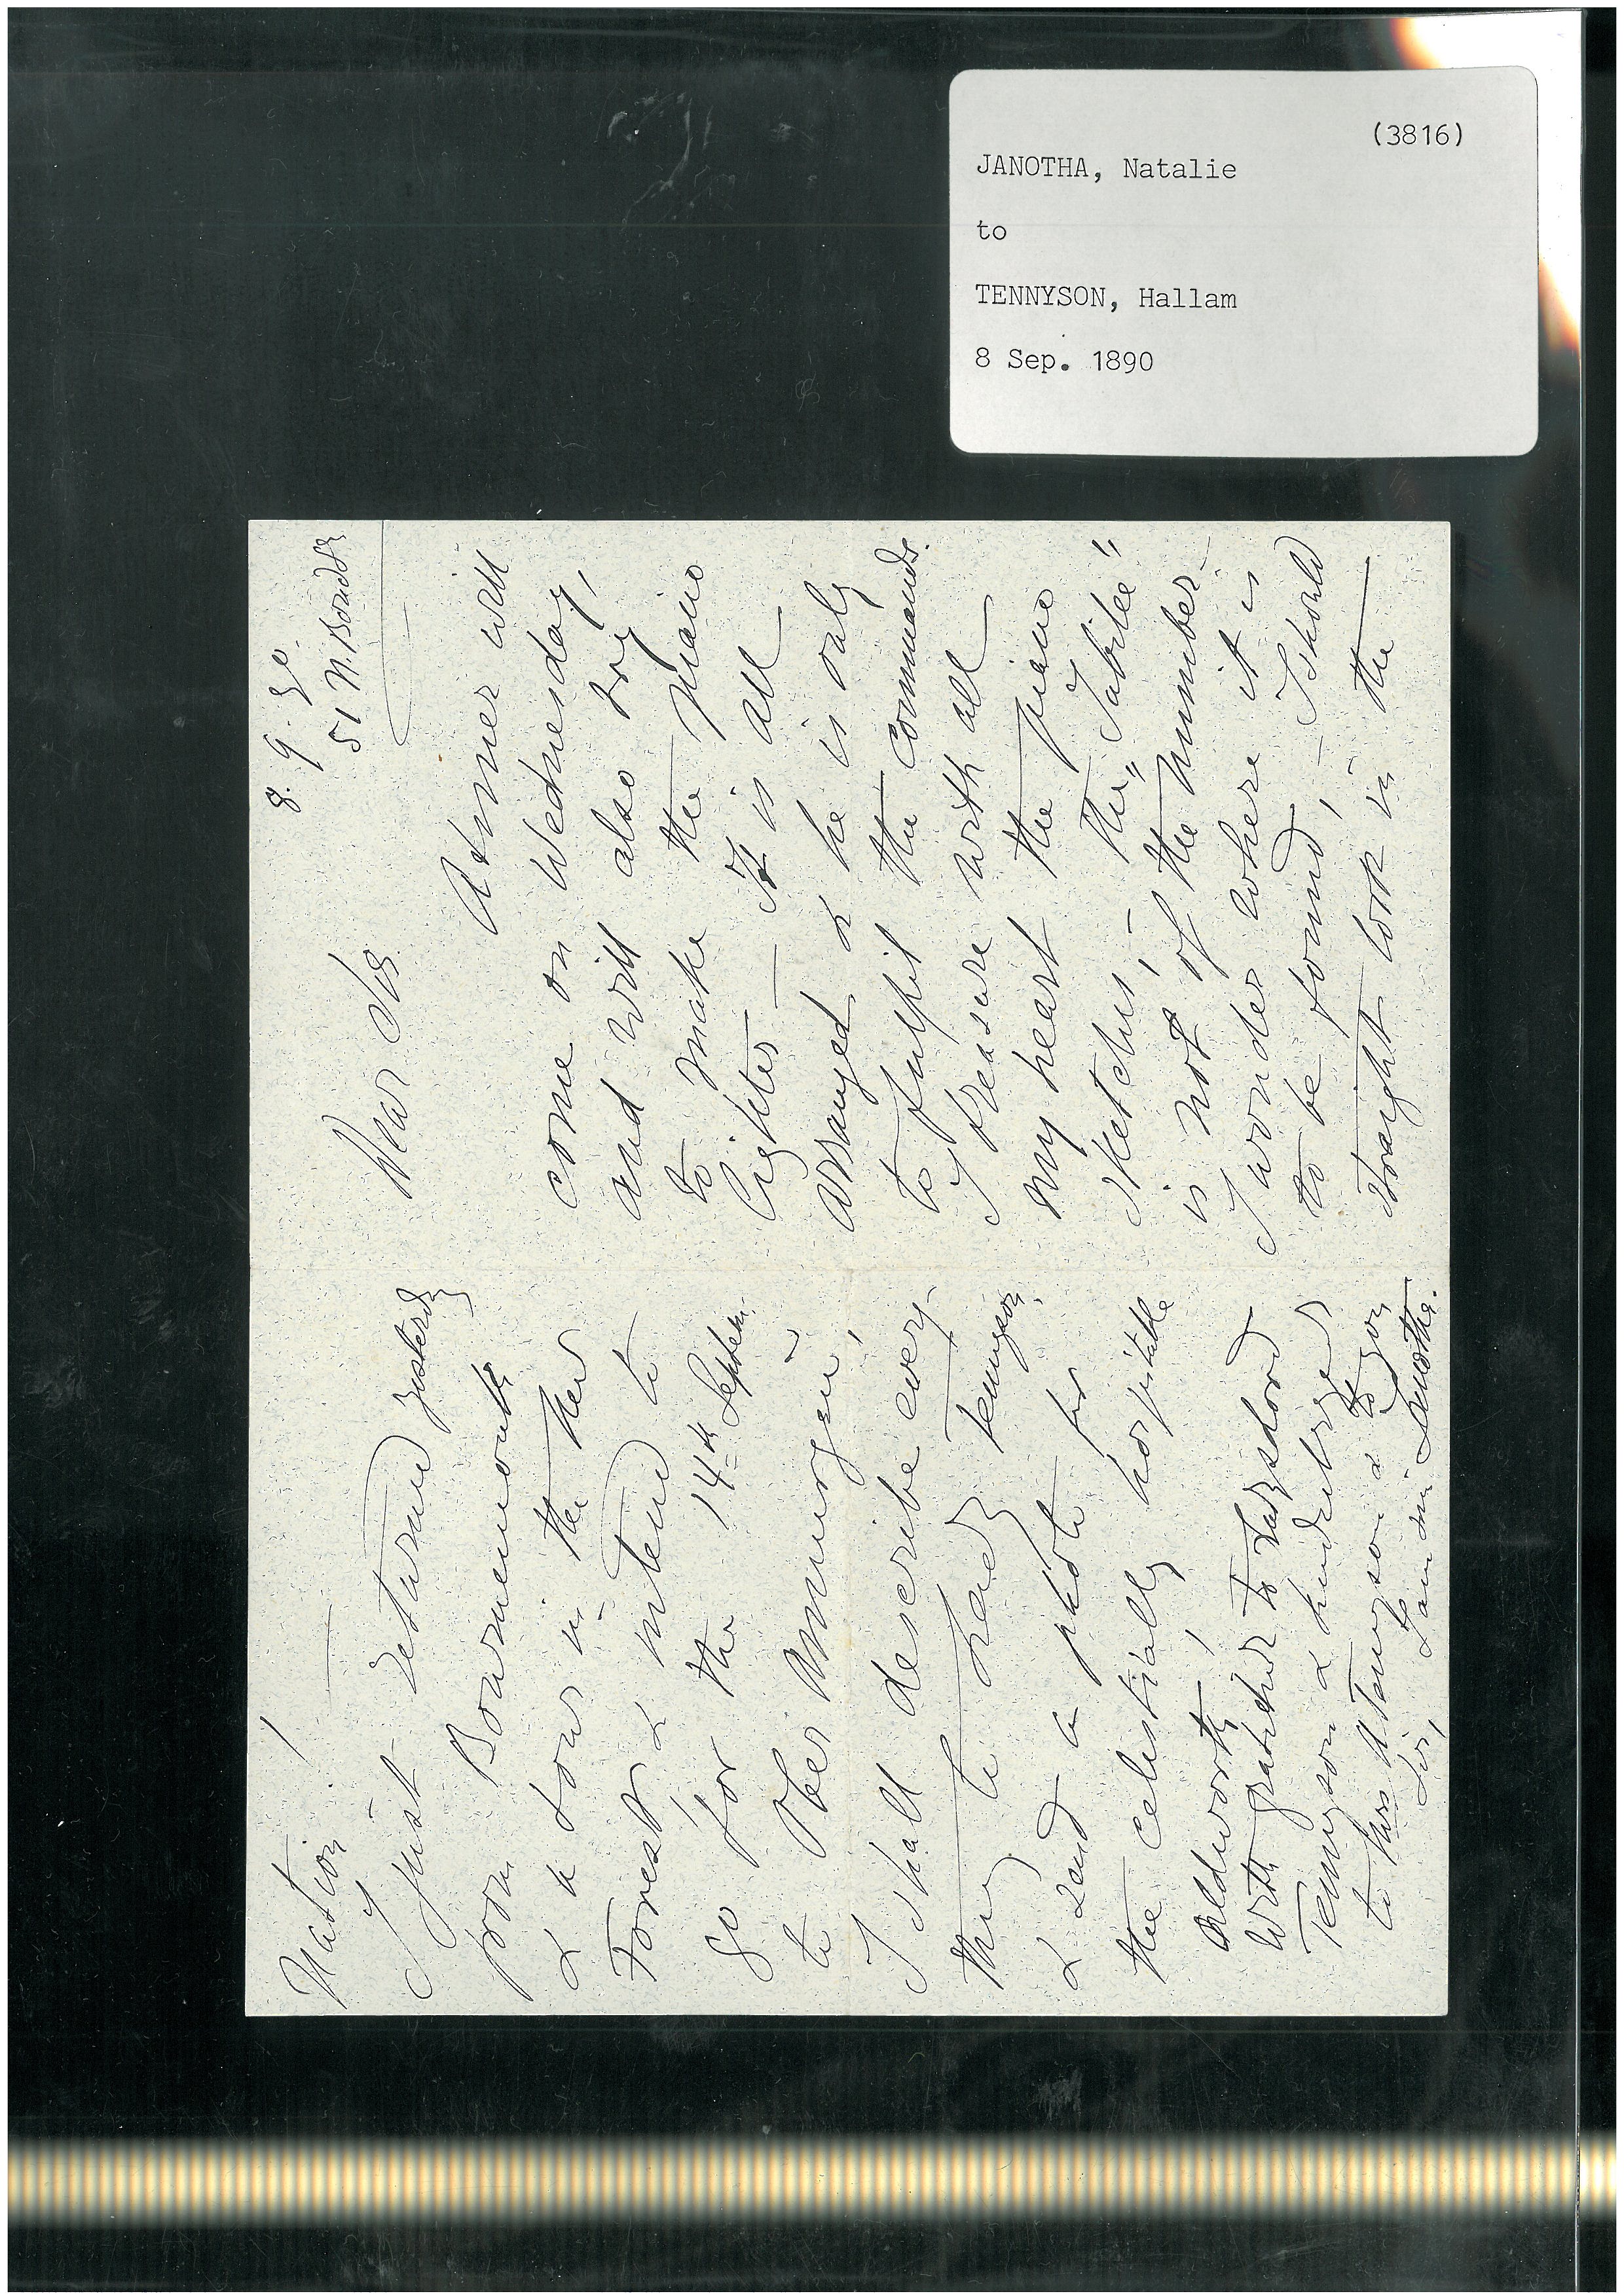 (3816)
JANOTHA, Natalie
to
TENNYSON, Hallam
8 Sep. 1890
8. 9. 90.
51 N.
Dear Sir
A tuner will
come on Wednesday,
and will also try
to make the piano
lighter — It is all
arranged & he is only
to fulfil the commands.
I treasure with all
my heart the piano
sketches, – the "Jubilee"
is not of the number –
I wonder where it is
to be found, – I should
straight look in the
Nation! —
I just returned yesterday
from Bournemouth
& a tour in the New
Forest & intend to
go for the 14th Septem.
to Ober Ammergau,
I shall describe every-
thing to Lady Tennyson,
& send a photo for
the celestially hospitable
Aldworth,
With gratitude to Lord
Tennyson &
to Mrs H Tennyson & to you
Sir, I am Janotha.